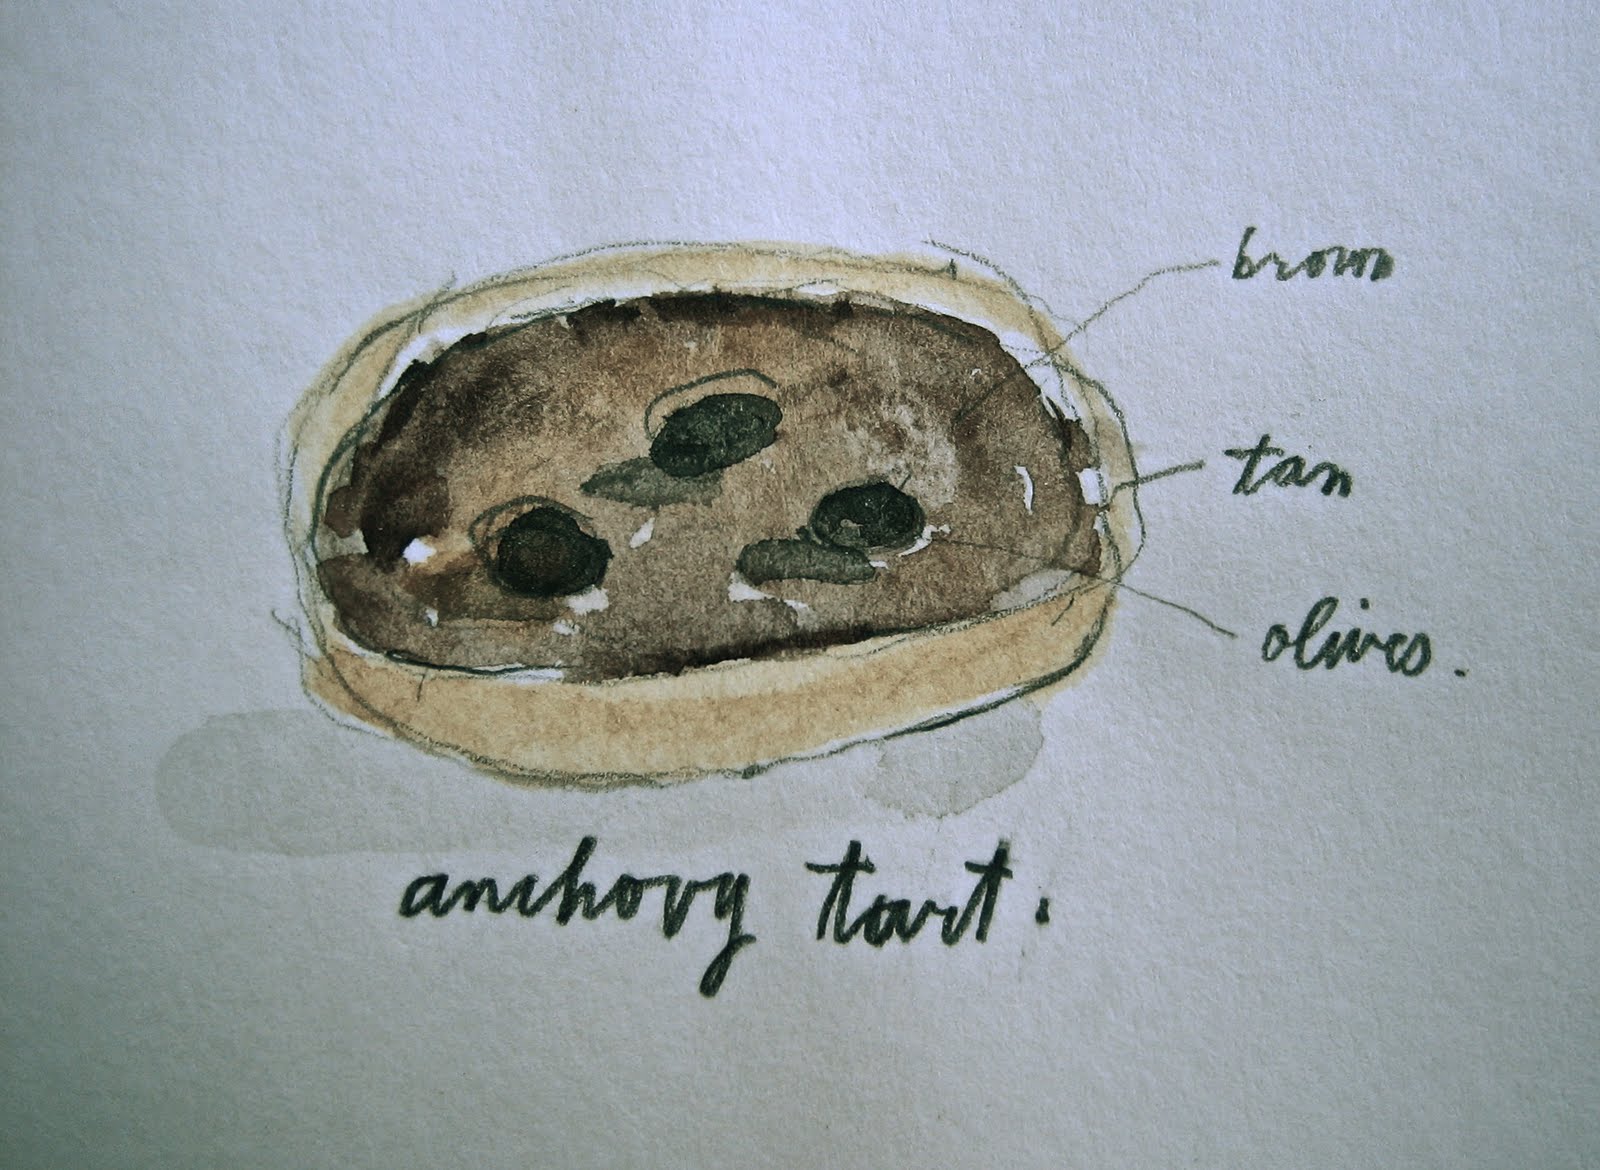 brown
tan
olives.
anchovy tart.